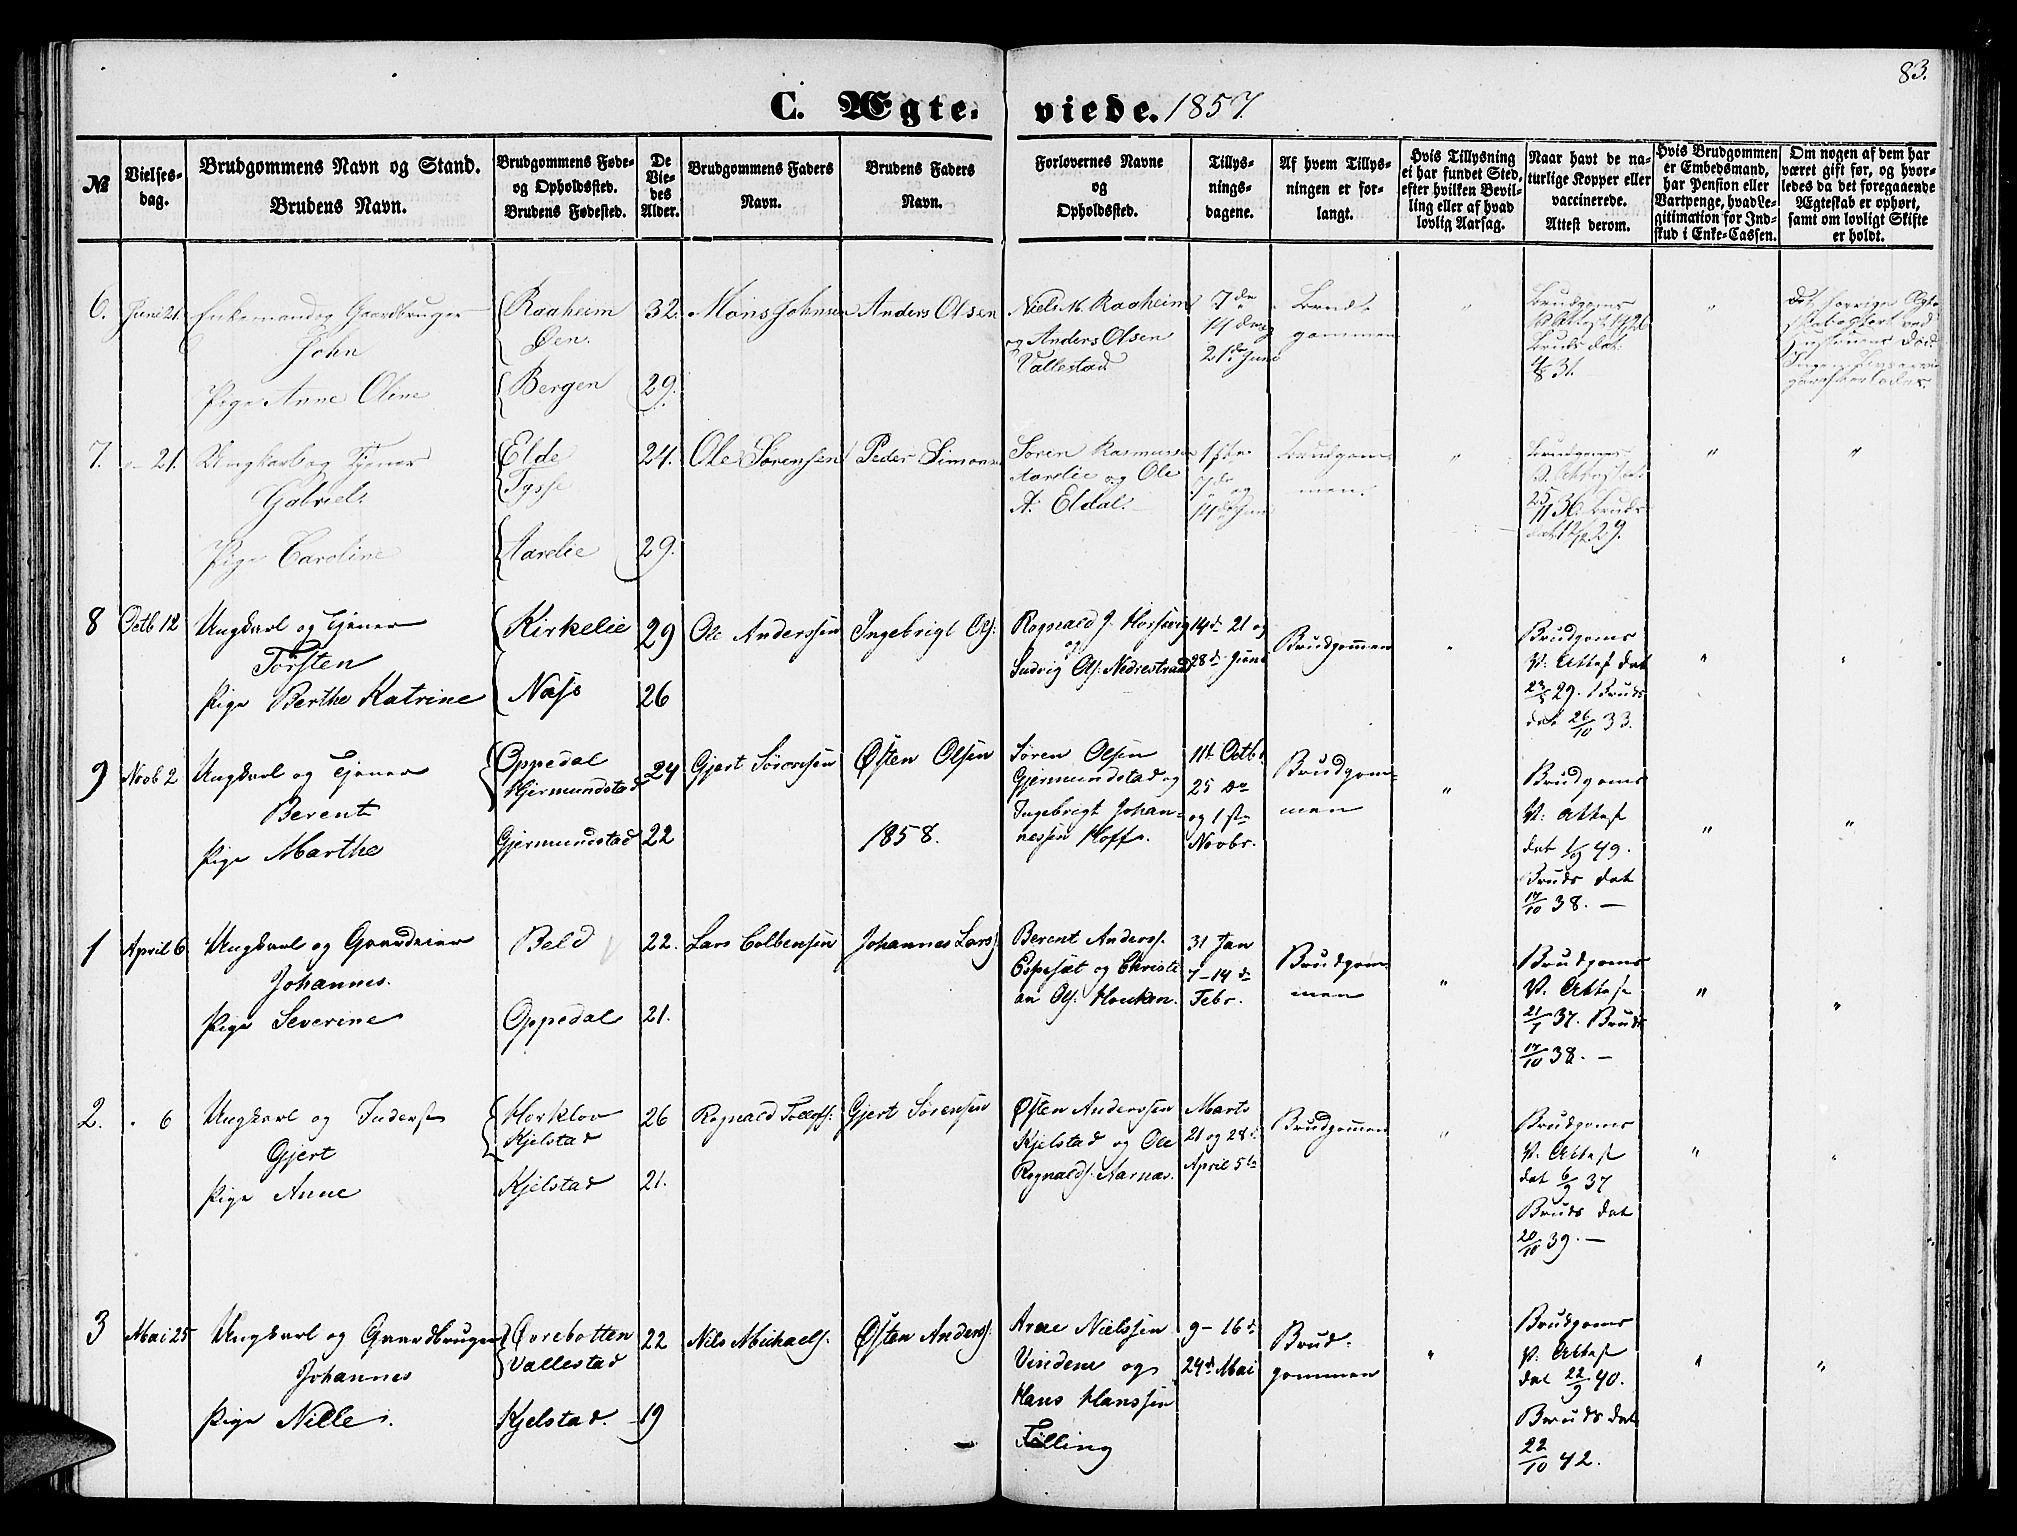 83.
C. Ægte- viede. 1857
№
Vielses-
dag.
Brudgommens Navn og Stand.
Brudens Navn.
Brudgommens Føde-
og Opholdssted.
Brudens Fødested.
De
Vie-
des
Alder.
Brudgommens Faders
Navn.
Brudens Faders
Navn.
Forlovernes Navne
og
Opholdssted.
Tillys-
nings-
dagene.
Af hvem Tillys-
ningen er for-
langt.
Hvis Tillysning
ei har fundet Sted,
efter hvilken Bevil-
ling eller af hvad
lovlig Aarsag.
Naar havt de na-
turlige Kopper eller
vaccinerede.
Attest derom.
Hvis Brudgommen
er Embedsmand,
har Pension eller
Vartpenge, hvad Le-
gitimation for Ind-
skud i Enke-Cassen.
Om nogen af dem har
været gift før, og hvor-
ledes da det foregaaende
Ægteskab er ophørt,
samt om lovligt Skifte
er holdt.
6.
Juni 21.
Enkemand og Gaardbruger
John
Pige Anne Oline
Raaheim
Øen.
Bergen
32.
29.
Mons Johnsen
Anders Olsen
Niels M. Raaheim
og Anders Olsen
Vallestad
7de
14de og
21de Juni
Brud-
gommen
"
Brudgoms
Bruds dat.
4/8 31.
"
7.
" 21.
Ungkarl og Tjener
Gabriel.
Pige Caroline
Elde
Tysse
Aarelie
24.
29.
Ole Sørensen
Peder Simons
Søren Rasmussen
Aarelie og Ole
A. Eldal.
1ste
7de og
14de Juni
Brudgom-
men.
"
Brudgoms
V. Attest dat.
25/11 36. Bruds
dat 12/12 29.
"
"
8
Octb 12
Ungkarl og Tjener
Torsten
Pige Berthe Katrine
Kirkelie
Næss
29
26
Ole Anderssen
Ingebrigt Ols.
Rognald J. Horsevig
og
Ludvig Ols. Nedrestrand
14de 21 og
28de Juni
Brudgommen
"
Brudgoms
V. Attest dat
23/8 29. Bruds
dat 26/10 33.
"
"
9
Novb 2
Ungkarl og Tjener
Berent
Pige Marthe
Oppedal
Gjermundstad
Gjermundstad
24
22
Gjert Sørensen
Østen Olsen
1858.
Søren Olsen
Gjermundstad og
Ingebrigt Johan-
nessen Hoff.
11te Octb.
25 De
og 1ste
Novbr.
Brudgom-
men
"
Brudgoms
V. Attest
dat 1/9 49.
Bruds dat
17/10 38. —
"
"
1
April 6
Ungkarl og Gaardeier
Johannes.
Pige Severine
Beld
Oppedal
22.
21.
Lars Colbensen
Johannes Lars.
Berent Anderss.
Espesæt og Christi
an Ols. Houkan.
31 Jan
7-14de
Febr.
Brudgom-
men
"
Brudgoms
V. Attest
21/7 37. Bruds
17/10 38. —
"
"
2.
" 6
Ungkarl og Inderst
Gjert
Pige Anne
Horklov
Kjelstad
Kjelstad
26
21.
Rognald Tollefs.
Gjert Sørensen
Østen Anderssen
Kjelstad og Ole
Rognalds. Aarnæs.
Marts
21 og 28de
April 5te
Brudgommen
"
Brudgoms
V. Attest
dat 6/9 37
Bruds dat
20/10 39. —
"
"
3
Mai 25
Ungkarl og Gaardbruger
Johannes
Pige Nille.
Øvrebotten
Vallestad
Kjelstad.
22
19
Nils Michaels.
Østen Anders.
Arne Nielssen
Vindene og
Hans Hanssen
Tilling
9-16de
24de Mai
Brud-
gommen
"
Brudgoms
V. Attest
dat 22/9 40.
Bruds dat
22/10 42.
"
"